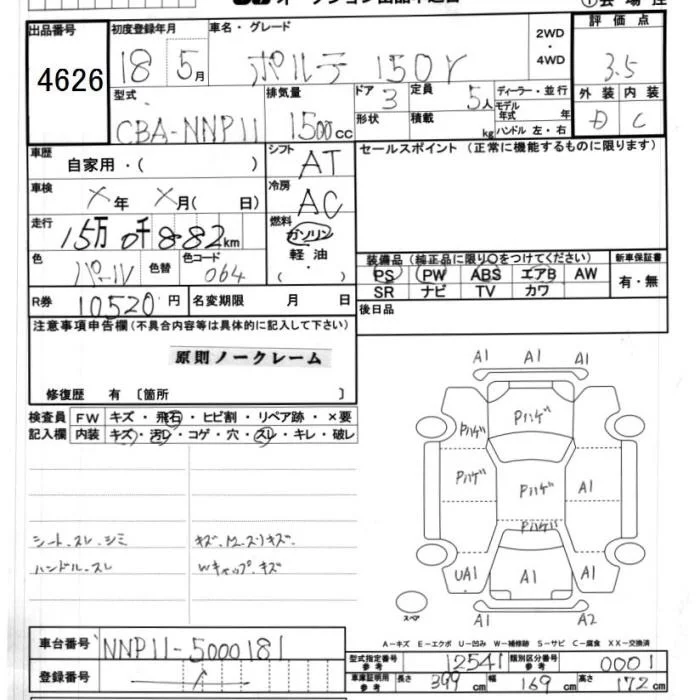 出品番号 初度登録年月 車名・グレード 2WD ・ 4WD 評価点
4626 18 5月 ポルテ 150r 3.5
型式 排気量 ドア 定員 ディーラー・並行 外装 内装
CBA-NNP11 1500cc 3 5人 モデル年式 年 D C
形状 積載 kg ハンドル 左・右
車歴 自家用・( ) シフト AT セールスポイント (正常に機能するものに限ります)
車検 ×年 ×月( 日) 冷房 AC
走行 15万0千882km 燃料 ガソリン
軽油
・
( )
色 パール 色替 色コード 064
装備品 (純正品に限り○をつけてください) 新車保証書
PS PW ABS エアB AW 有・無
SR ナビ TV カワ
R券 10520円 名変期限 月 日 後日品
注意事項申告欄(不具合内容等は具体的に記入して下さい)
原則ノークレーム
修復歴 有 〔箇所 〕
検査員 FW キズ・飛石・ヒビ割・リペア跡・×要
記入欄 内装 キズ・汚レ・コゲ・穴・スレ・キレ・破レ
A1 A1 A1
Pハゲ Pハゲ
Pハゲ Pハゲ A1
Pハゲ
シート.スレ.シミ
ハンドル.スレ Wキャップ.キズ
UA1 A1 A1
スペア A1 A2
A-キズ E-エクボ U-凹み W-補修跡 S-サビ C-腐食 XX-交換済
車台番号 NNP11-5000181
登録番号
型式指定番号 参考 12541 類別区分番号 参考 0001
車庫証明用 参考 長さ 399cm 幅 169cm 高さ 172cm